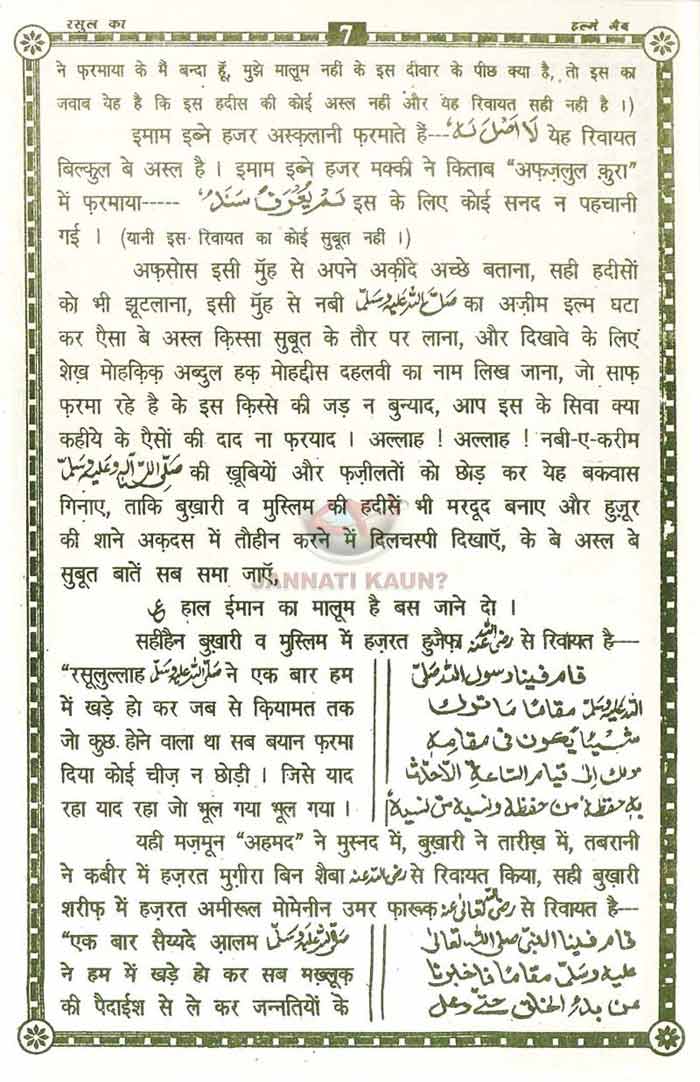 रसूल का
7
इल्मे ग़ैब
ने फ़रमाया के मैं बन्दा हूँ, मुझे मालूम नही के इस दीवार के पीछ क्या है, तो इस का
जवाब येह है कि इस हदीस की कोई अस्ल नही और येह रिवायत सही नही है ।)
इमाम इब्ने हजर अस्क़लानी फ़रमाते हैं---لَا اَصْلَ لَهٗ येह रिवायत
बिल्कुल बे अस्ल है । इमाम इब्ने हजर मक्की ने किताब “अफ़ज़लुल क़ुरा”
में फ़रमाया----- لَمْ يُعْرَفْ لَهٗ سَنَدٌ इस के लिए कोई सनद न पहचानी
गई । (यानी इस रिवायत का कोई सुबूत नही ।)
अफ़सोस इसी मुँह से अपने अक़ीदे अच्छे बताना, सही हदीसों
को भी झूटलाना, इसी मुँह से नबी صلی اللہ علیہ وسلم का अज़ीम इल्म घटा
कर ऐसा बे अस्ल क़िस्सा सुबूत के तौर पर लाना, और दिखावे के लिएं
शेख़ मोहक़िक़ अब्दुल हक़ मोहद्दीस दहलवी का नाम लिख जाना, जो साफ़
फ़रमा रहे है के इस क़िस्से की जड़ न बुन्याद, आप इस के सिवा क्या
कहीये के ऐसों की दाद ना फ़रयाद । अल्लाह ! अल्लाह ! नबी-ए-करीम
صلی اللہ علیہ وآلہ وسلم की ख़ूबियों और फ़ज़ीलतों को छोड़ कर येह बकवास
गिनाए, ताकि बुख़ारी व मुस्लिम की हदीसें भी मरदूद बनाए और हुज़ूर
की शाने अक़दस में तौहीन करने में दिलचस्पी दिखाएँ, के बे अस्ल बे
सुबूत बातें सब समा जाएँ,
JANNATI KAUN?
ع हाल ईमान का मालूम है बस जाने दो ।
सहीहैन बुख़ारी व मुस्लिम में हज़रत हुज़ैफ़ा رضی اللہ عنہ से रिवायत है—
“रसूलुल्लाह صلی اللہ علیہ وسلم ने एक बार हम
में खड़े हो कर जब से क़ियामत तक
जो कुछ होने वाला था सब बयान फ़रमा
दिया कोई चीज़ न छोड़ी । जिसे याद
रहा याद रहा जो भूल गया भूल गया ।
قام فینا رسول اللہ صلی
اللہ علیہ وسلم مقاما ما ترك
شیئا یكون فی مقامه
ذلك الی قیام الساعة الا حدث
به حفظه من حفظه ونسیه من نسیه
यही मज़मून “अहमद” ने मुस्नद में, बुख़ारी ने तारीख़ में, तबरानी
ने कबीर में हज़रत मुग़ीरा बिन शैबा رضی اللہ عنہ से रिवायत किया, सही बुख़ारी
शरीफ़ में हज़रत अमीरूल मोमेनीन उमर फ़ारूक़ رضی اللہ تعالیٰ عنہ से रिवायत है—
“एक बार सैय्यदे आलम صلی اللہ علیہ وسلم
ने हम में खड़े हो कर सब मख़्लूक़
की पैदाईश से ले कर जन्नतियों के
قام فینا النبی صلی اللہ تعالی
علیه وسلم مقاما فاخبرنا
عن بدء الخلق حتی دخل